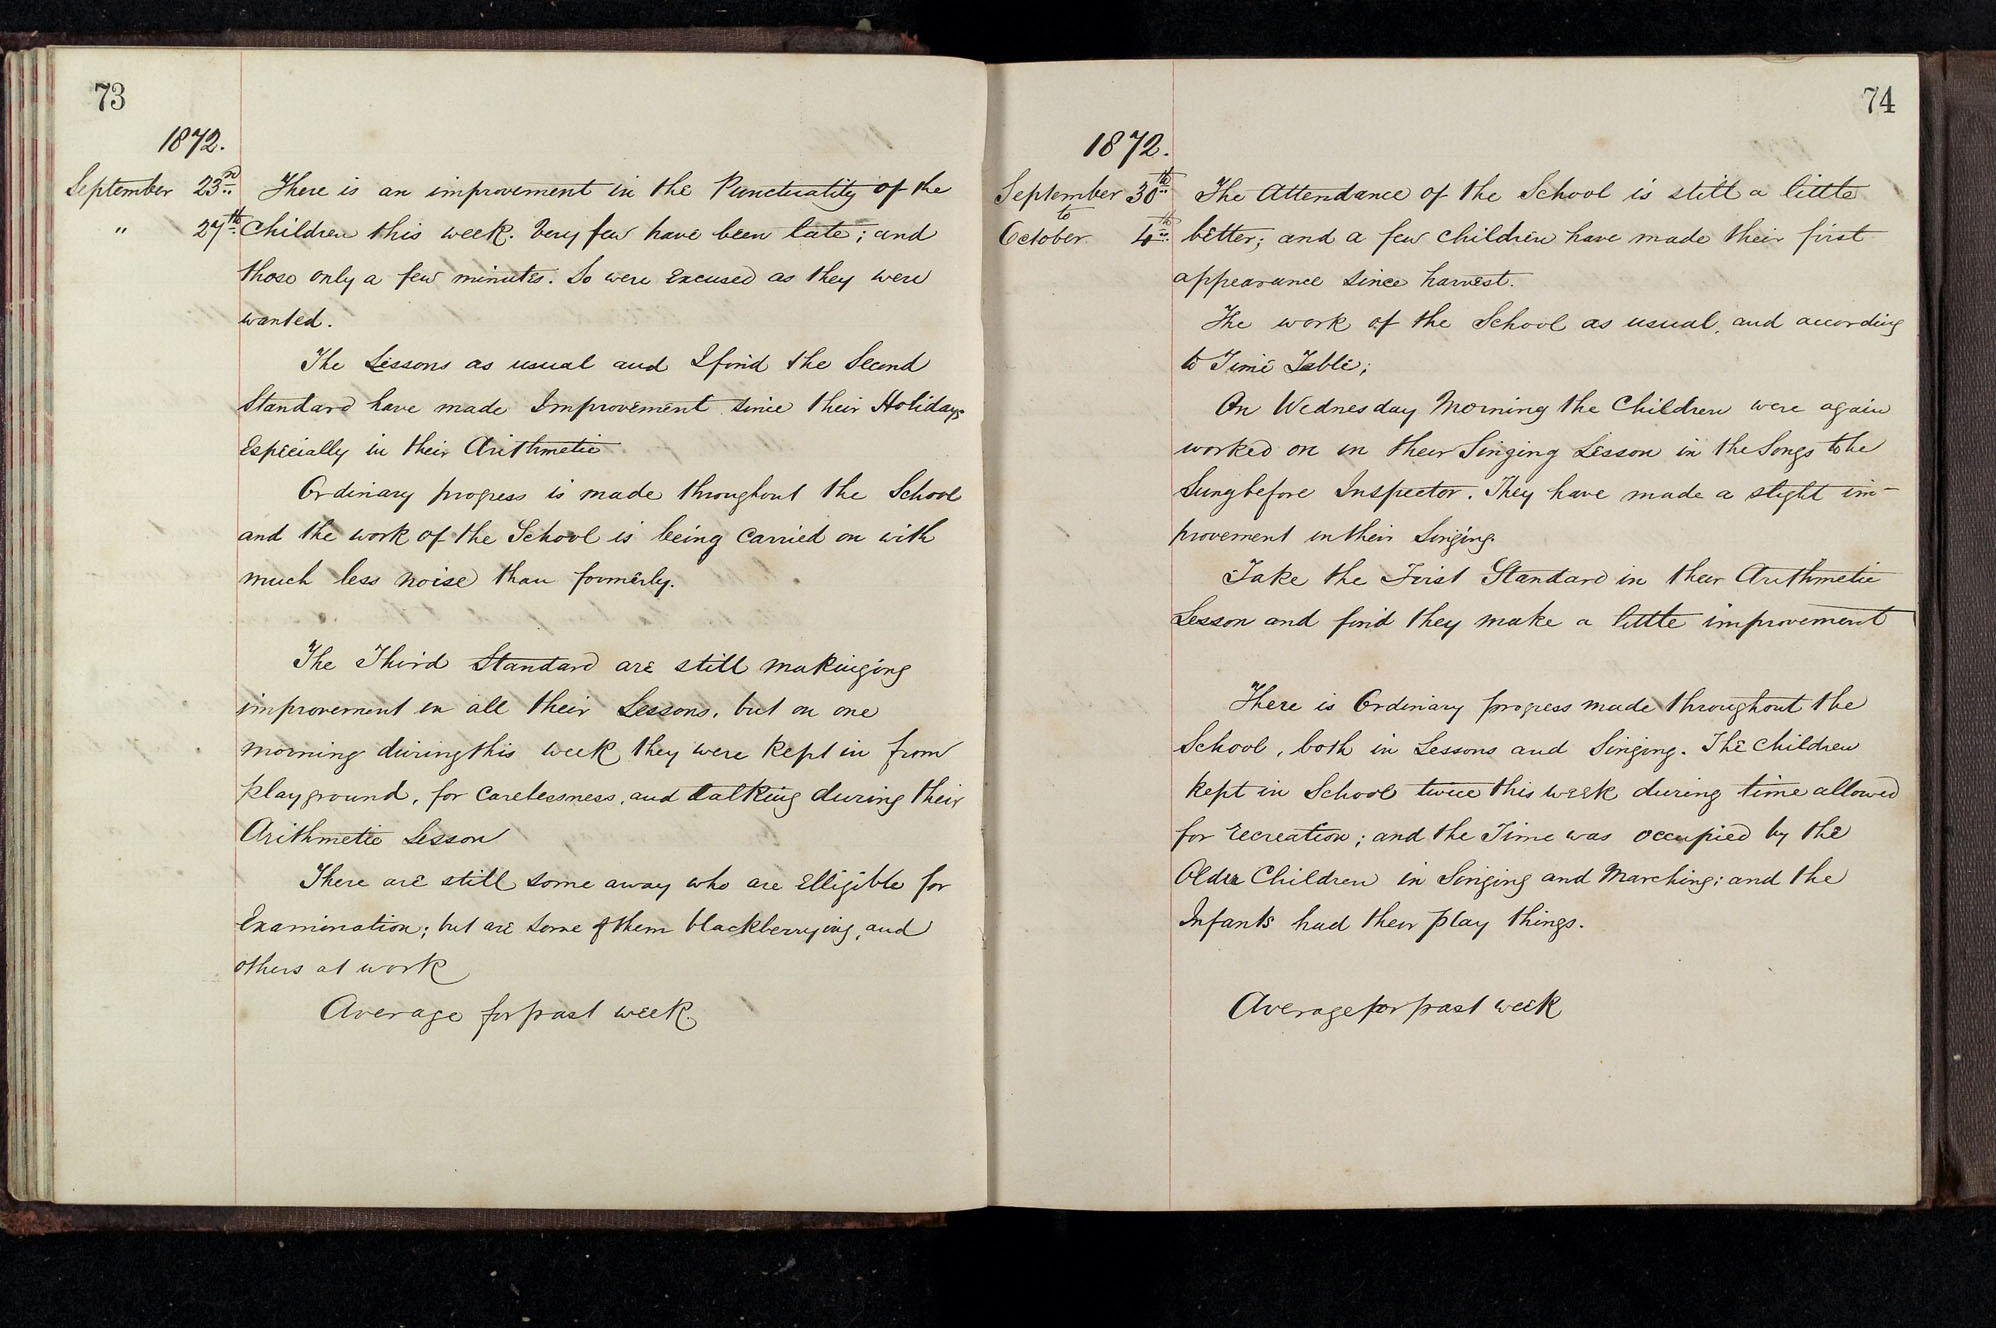 73
1872.
September 23rd There is an improvement in the Punctuality of the
" 27th Children this week. Very few have been late; and
those only a few minutes. So were Excused as they were
wanted.
The Lessons as usual and I find the Second
Standard have made Improvement since their Holidays
Especially in their Arithmetic
Ordinary progress is made throughout the School
and the work of the School is being carried on with
much less noise than formerly.
The Third Standard are still makinging
improvement in all their Lessons, but on one
morning during this week they were kept in from
playground, for carelessness, and talking during their
Arithmetic Lesson
There are still some away who are Elligible for
Examination; but are some of them blackberrying, and
others at work
Average for past week.
74
1872.
September 30th The Attendance of the School is still a little
to
October 4th better; and a few children have made their first
appearance since harvest.
The work of the School as usual, and according
to Time Table;
On Wednesday Morning the Children were again
worked on in their Singing Lesson in the Songs to be
Sung before Inspector. They have made a slight im-
provement in their Singing.
Take the First Standard in their Arithmetic
Lesson and find they make a little improvement
There is Ordinary progress made throughout the
School, both in Lessons and Singing. The Children
kept in School twice this week during time allowed
for recreation; and the Time was occupied by the
Older Children in Singing and Marching; and the
Infants had their play things.
Average for past week